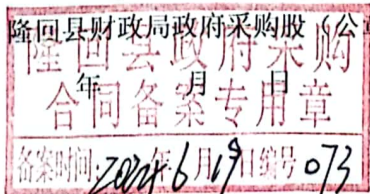 隆回县财政局政府采购股（公章
年 月 日
隆回县政府采购
合同备案专用章
备案时间:2024年6月19日编号073